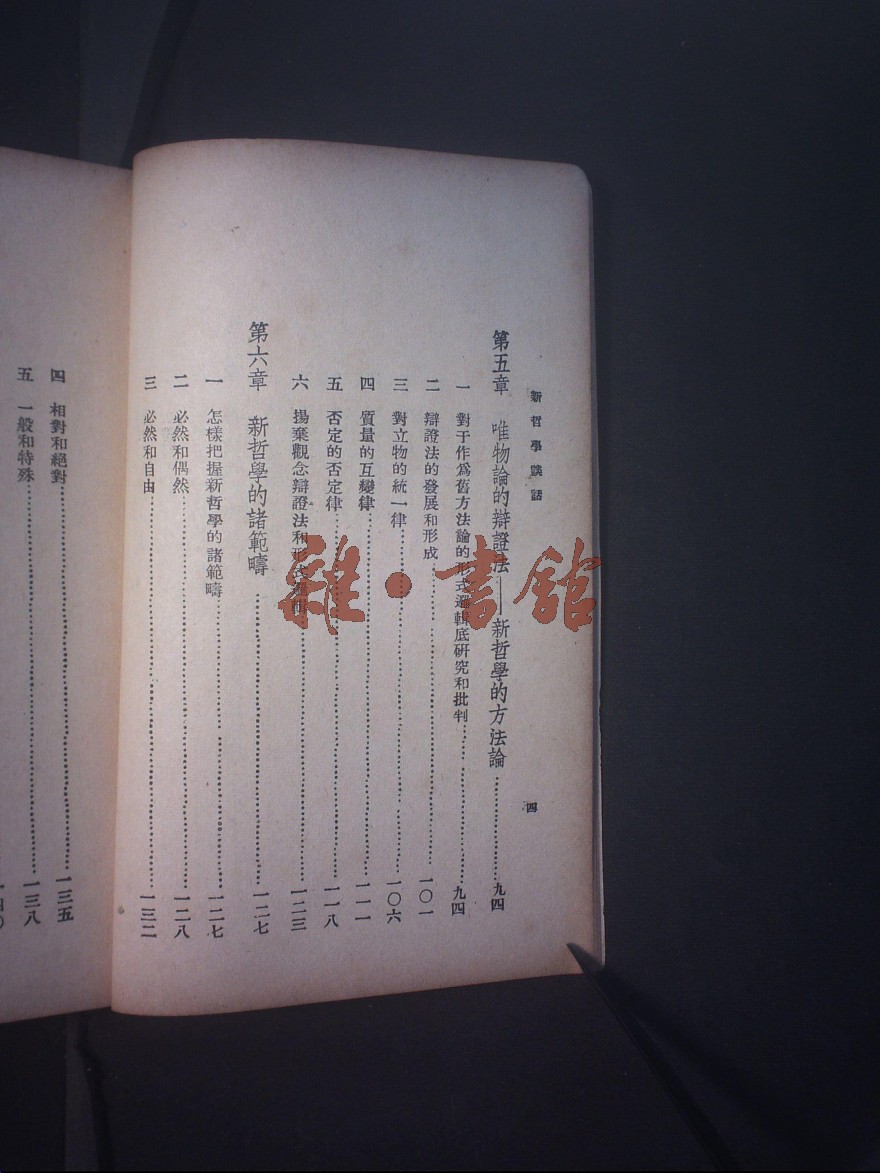 新哲學談話
四
第五章 唯物論的辯證法——新哲學的方法論…………九四
一 對于作爲舊方法論的形式邏輯底研究和批判…………九四
二 辯證法的發展和形成…………一〇一
三 對立物的統一律…………一〇六
四 質量的互變律…………一一一
五 否定的否定律…………一一八
六 揚棄觀念辯證法和形式邏輯…………一二三
第六章 新哲學的諸範疇…………一二七
一 怎樣把握新哲學的諸範疇…………一二七
二 必然和偶然…………一二八
三 必然和自由…………一三二
四 相對和絕對…………一三五
五 一般和特殊…………一三八
雜·書館